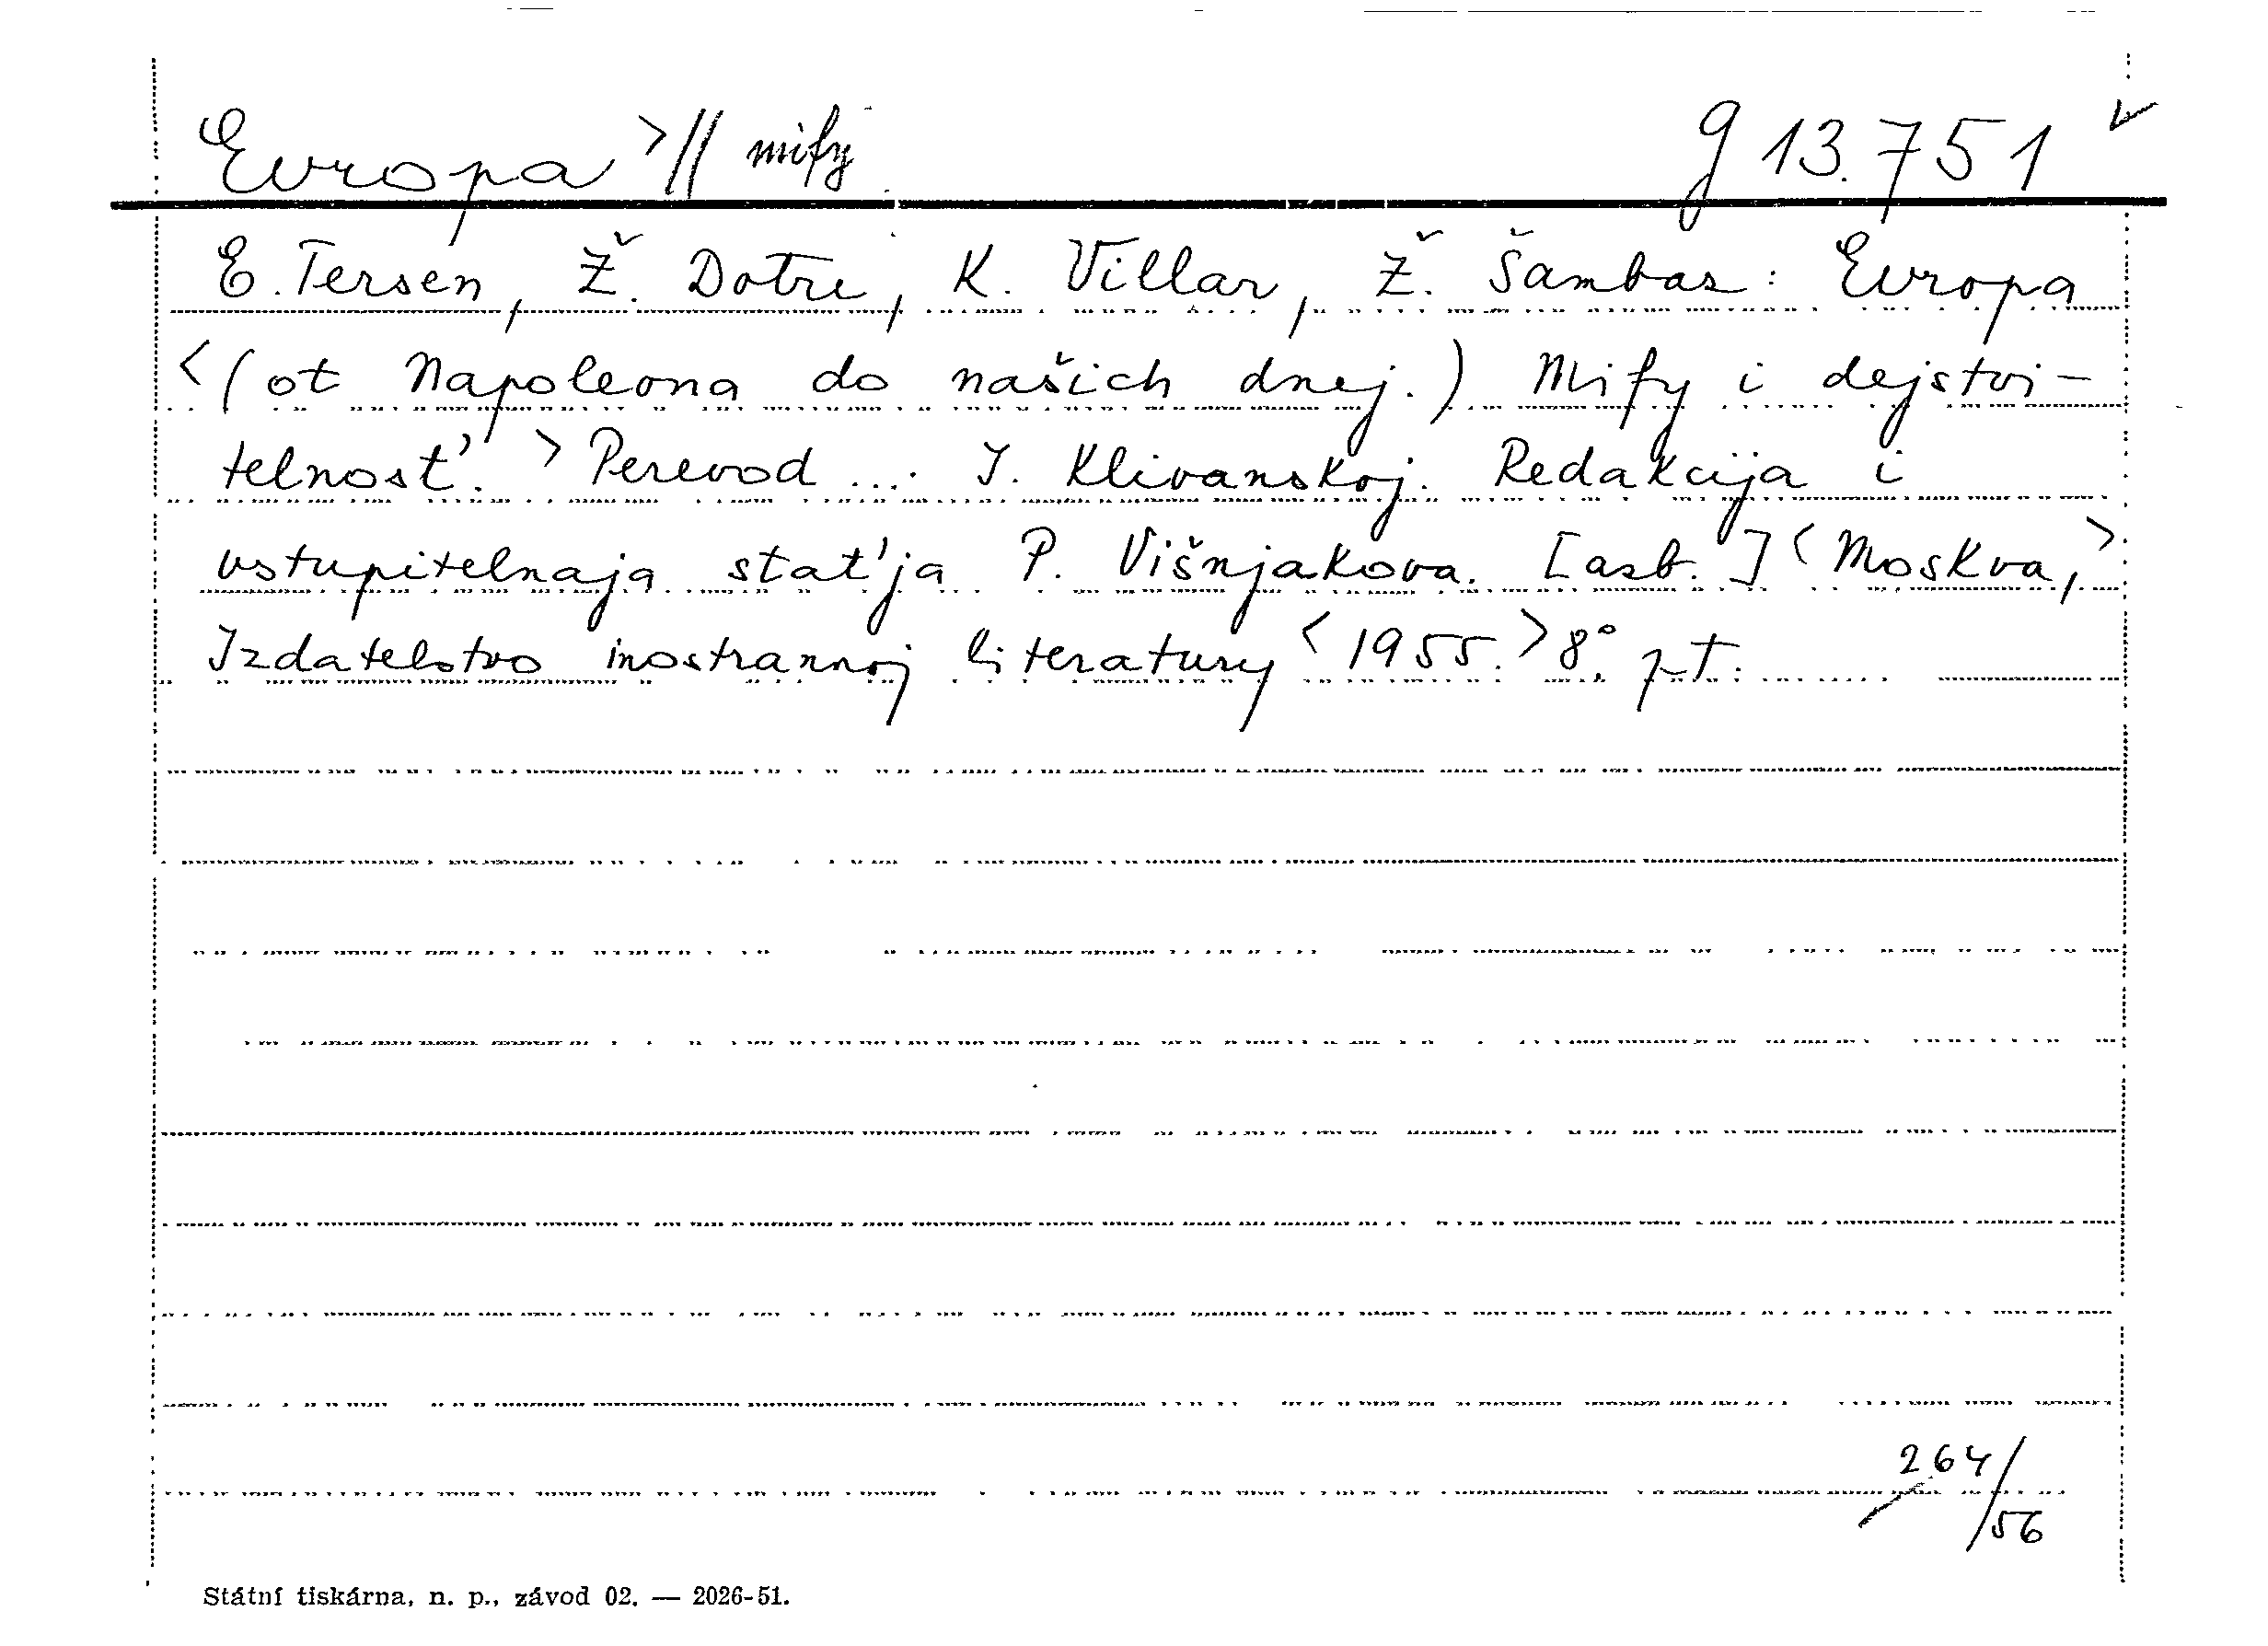 Evropa > // mify g 13.751
E. Tersen, Ž. Dotre, K. Villar, Ž. Šambas: Evropa
<(ot Napoleona do našich dnej.) Mify i dejstvi-
telnosť. > Perevod ... I. Klivanskoj. Redakcija i
vstupitelnaja stať'ja P. Višnjakova. [asb.] <Moskva,>
Izdatelstvo inostrannoj literatury <1955.> 8°. pt.
264/
56
Státní tiskárna, n. p., závod 02. — 2026-51.